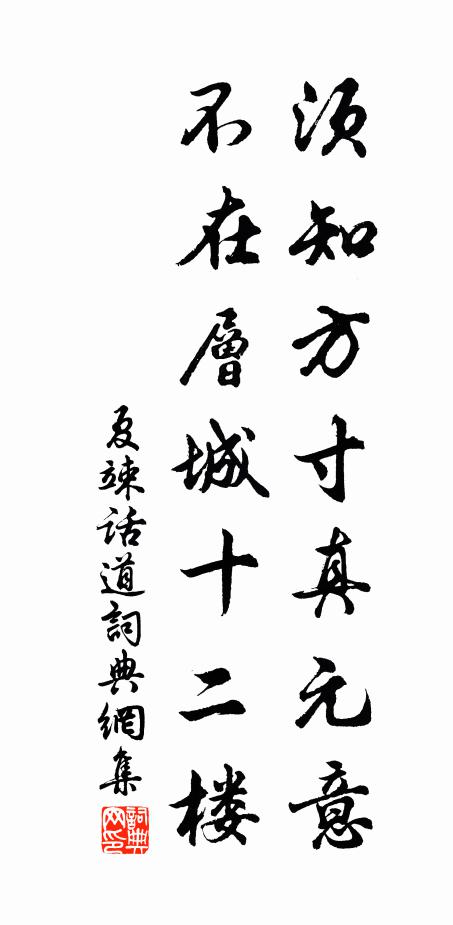 须知方寸真元意
不在層城十二楼
夏竦话道詞典網集
詞典网印